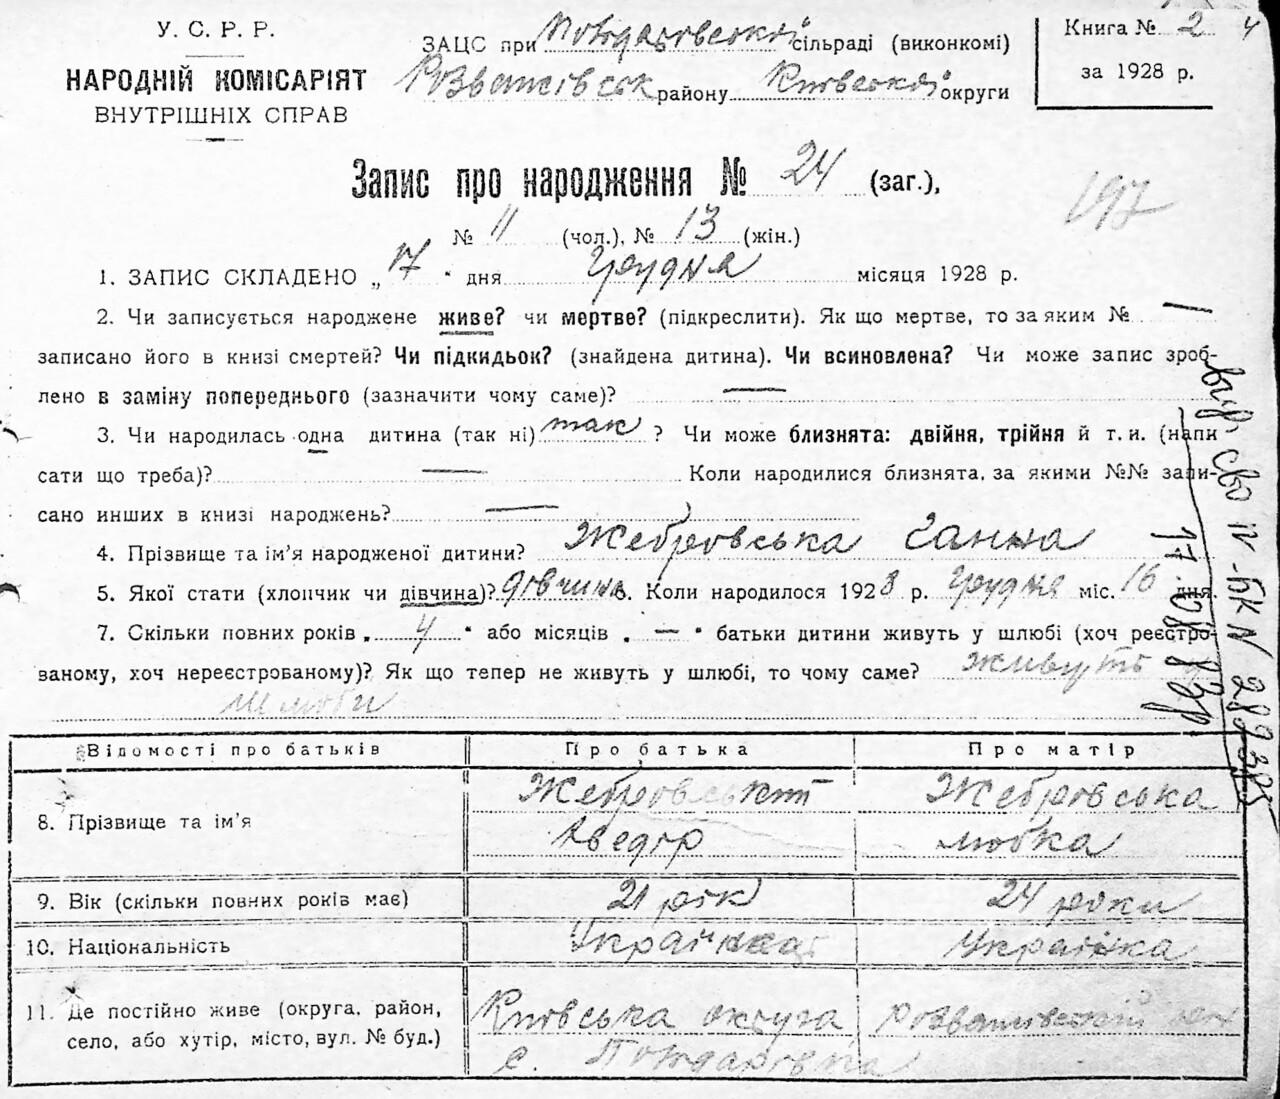 У. С. Р. Р.
НАРОДНІЙ КОМІСАРІЯТ
ВНУТРІШНІХ СПРАВ
ЗАЦС при сільраді (виконкомі)
Розважівськ району Київської округи
Книга № 2
за 1928 р.
4
Запис про народження № 24 (заг.),
197
№ 11 (чол.), № 13 (жін.)
1. ЗАПИС СКЛАДЕНО „ 17 “ дня Грудня місяця 1928 р.
2. Чи записується народжене живе? чи мертве? (підкреслити). Як що мертве, то за яким № —
записано його в книзі смертей? Чи підкидьок? (знайдена дитина). Чи всиновлена? Чи може запис зроб-
лено в заміну попереднього (зазначити чому саме)? —
3. Чи народилась одна дитина (так ні) так ? Чи може близнята: двійня, трійня й т. и. (напи
сати що треба)? — Коли народилися близнята, за якими №№ запи-
сано инших в книзі народжень? —
4. Прізвище та ім’я народженої дитини? Жебровська Ганна
5. Якої стати (хлопчик чи дівчина)? дівчина 6. Коли народилося 1928 р. Грудня міс. 16 дня.
7. Скільки повних років „ 4 “ або місяців „ — “ батьки дитини живуть у шлюбі (хоч реєстро-
ваному, хоч нереєстрованому)? Як що тепер не живуть у шлюбі, то чому саме? живуть
шлюби
вид. сво IV-БК N 289385
17.08.83р.
Відомості про батьків Про батька Про матір
8. Прізвище та ім’я Жебровський Жебровська
Хведір Любка
9. Вік (скільки повних років має) 21 рік 24 роки
10. Національність Українець Українка
11. Де постійно живе (округа, район, Київська округа
село, або хутір, місто, вул. № буд.) с.